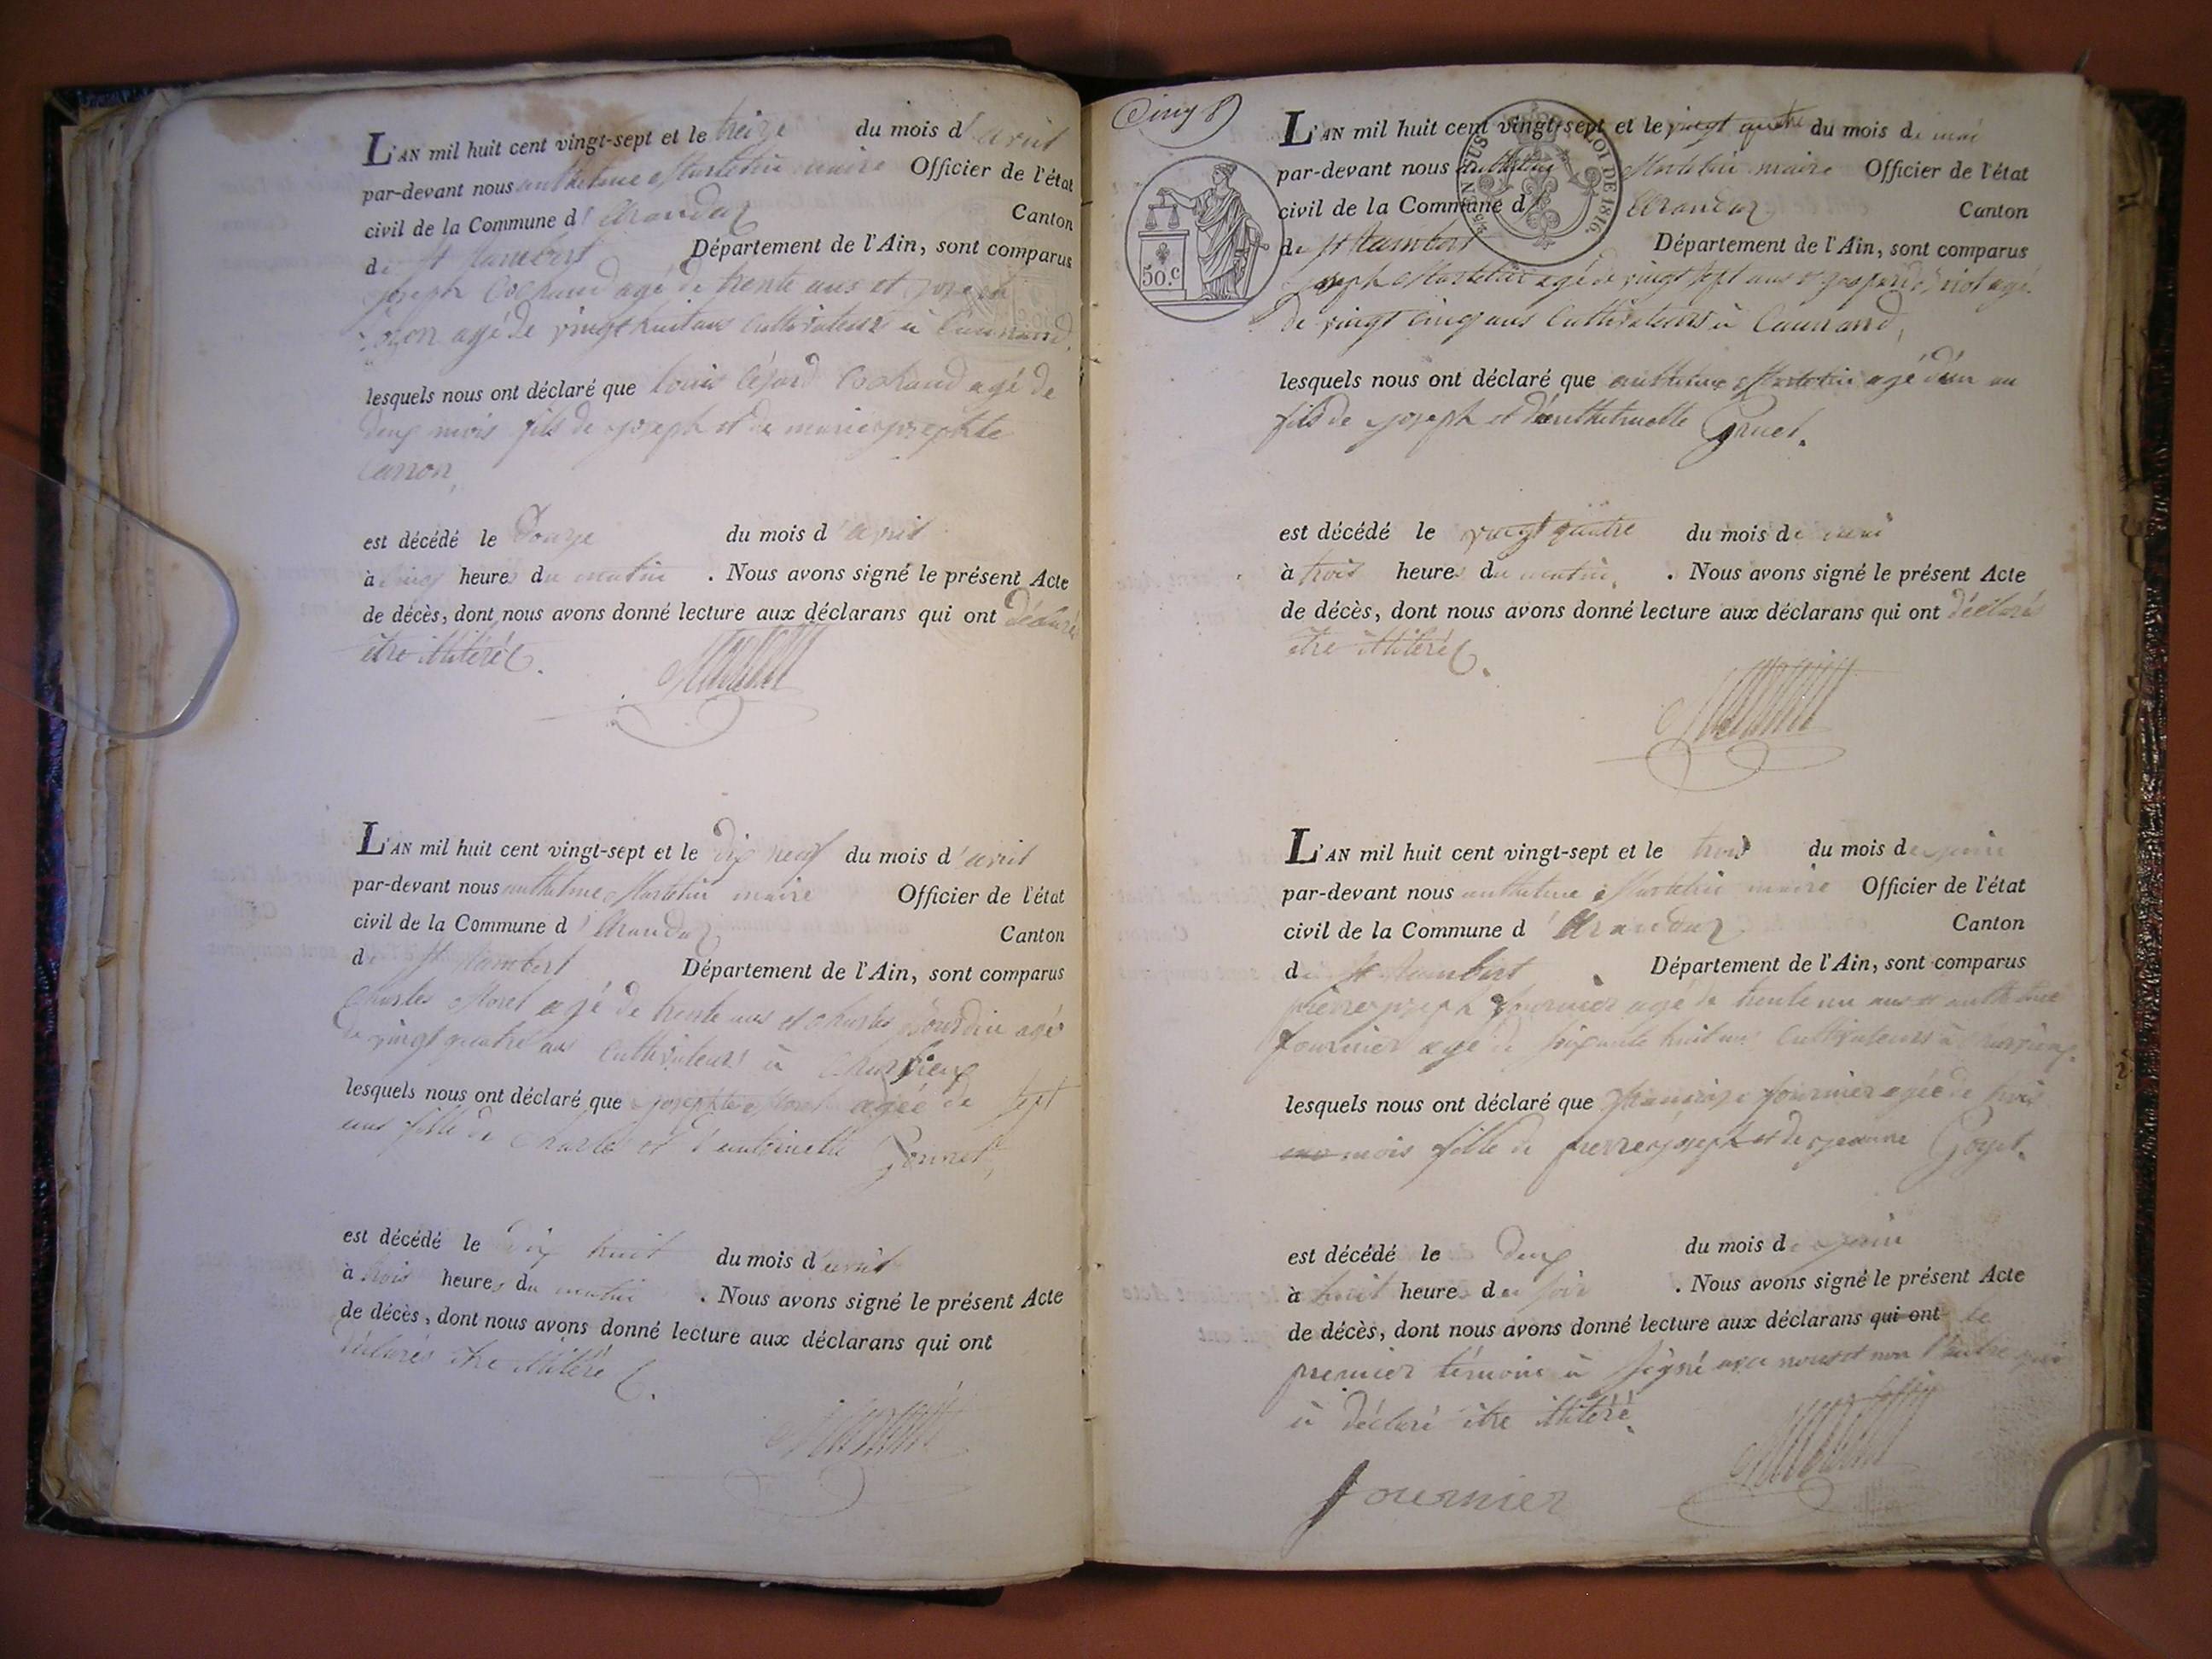 L'AN mil huit cent vingt-sept et le treize du mois d'avril
par-devant nous anthelme Martelin maire Officier de l'état
civil de la Commune d'Arandaz Canton
de St Rambert Département de l'Ain, sont comparus
joseph Cochaud agé de trente ans et joseph
agé de vingt huit ans Cultivateurs à
lesquels nous ont déclaré que louis Cochaud agé de
deux mois fils de joseph et de marie josephte
Carron,
est décédé le Douze du mois d'avril
à cinq heures du matin . Nous avons signé le présent Acte
de décès, dont nous avons donné lecture aux déclarans qui ont déclarés
être illitérés.
L'AN mil huit cent vingt-sept et le dix neuf du mois d'avril
par-devant nous anthelme Martelin maire Officier de l'état
civil de la Commune d'Arandaz Canton
de St Rambert Département de l'Ain, sont comparus
Charles Morel agé de trente ans et Charles Bourdin agé
de vingt quatre ans Cultivateurs à
lesquels nous ont déclaré que josephte Morel agée de sept
ans fille de Charles et d'antoinette
est décédé le dix huit du mois d'avril
à trois heures du matin . Nous avons signé le présent Acte
de décès, dont nous avons donné lecture aux déclarans qui ont
déclarés être illitérés.
Cinq
L'AN mil huit cent vingt-sept et le vingt quatre du mois de mai
par-devant nous anthelme Martelin maire Officier de l'état
civil de la Commune d'Arandaz Canton
de St Rambert Département de l'Ain, sont comparus
joseph Martelin agé de vingt sept ans et gaspard agé
de vingt cinq ans Cultivateurs à
lesquels nous ont déclaré que anthelme Martelin agé d'un an
fils de joseph et d'anthelmette Gruel.
est décédé le vingt quatre du mois de mai
à trois heures du matin. . Nous avons signé le présent Acte
de décès, dont nous avons donné lecture aux déclarans qui ont déclarés
être illitérés.
50.c
EN SUS
LOI DE 1816.
L'AN mil huit cent vingt-sept et le trois du mois de juin
par-devant nous anthelme Martelin maire Officier de l'état
civil de la Commune d'Arandaz Canton
de St Rambert Département de l'Ain, sont comparus
pierre joseph fournier agé de trente un ans et anthelme
fournier agé de soixante huit ans Cultivateurs à
lesquels nous ont déclaré que françoise fournier agée de trois
ans mois fille de pierre joseph et de jeanne Goyet.
est décédé le deux du mois de juin
à huit heures du soir . Nous avons signé le présent Acte
de décès, dont nous avons donné lecture aux déclarans qui ont le
premier témoin à signé avec nous et non l'autre qui
à déclaré être illitéré.
fournier